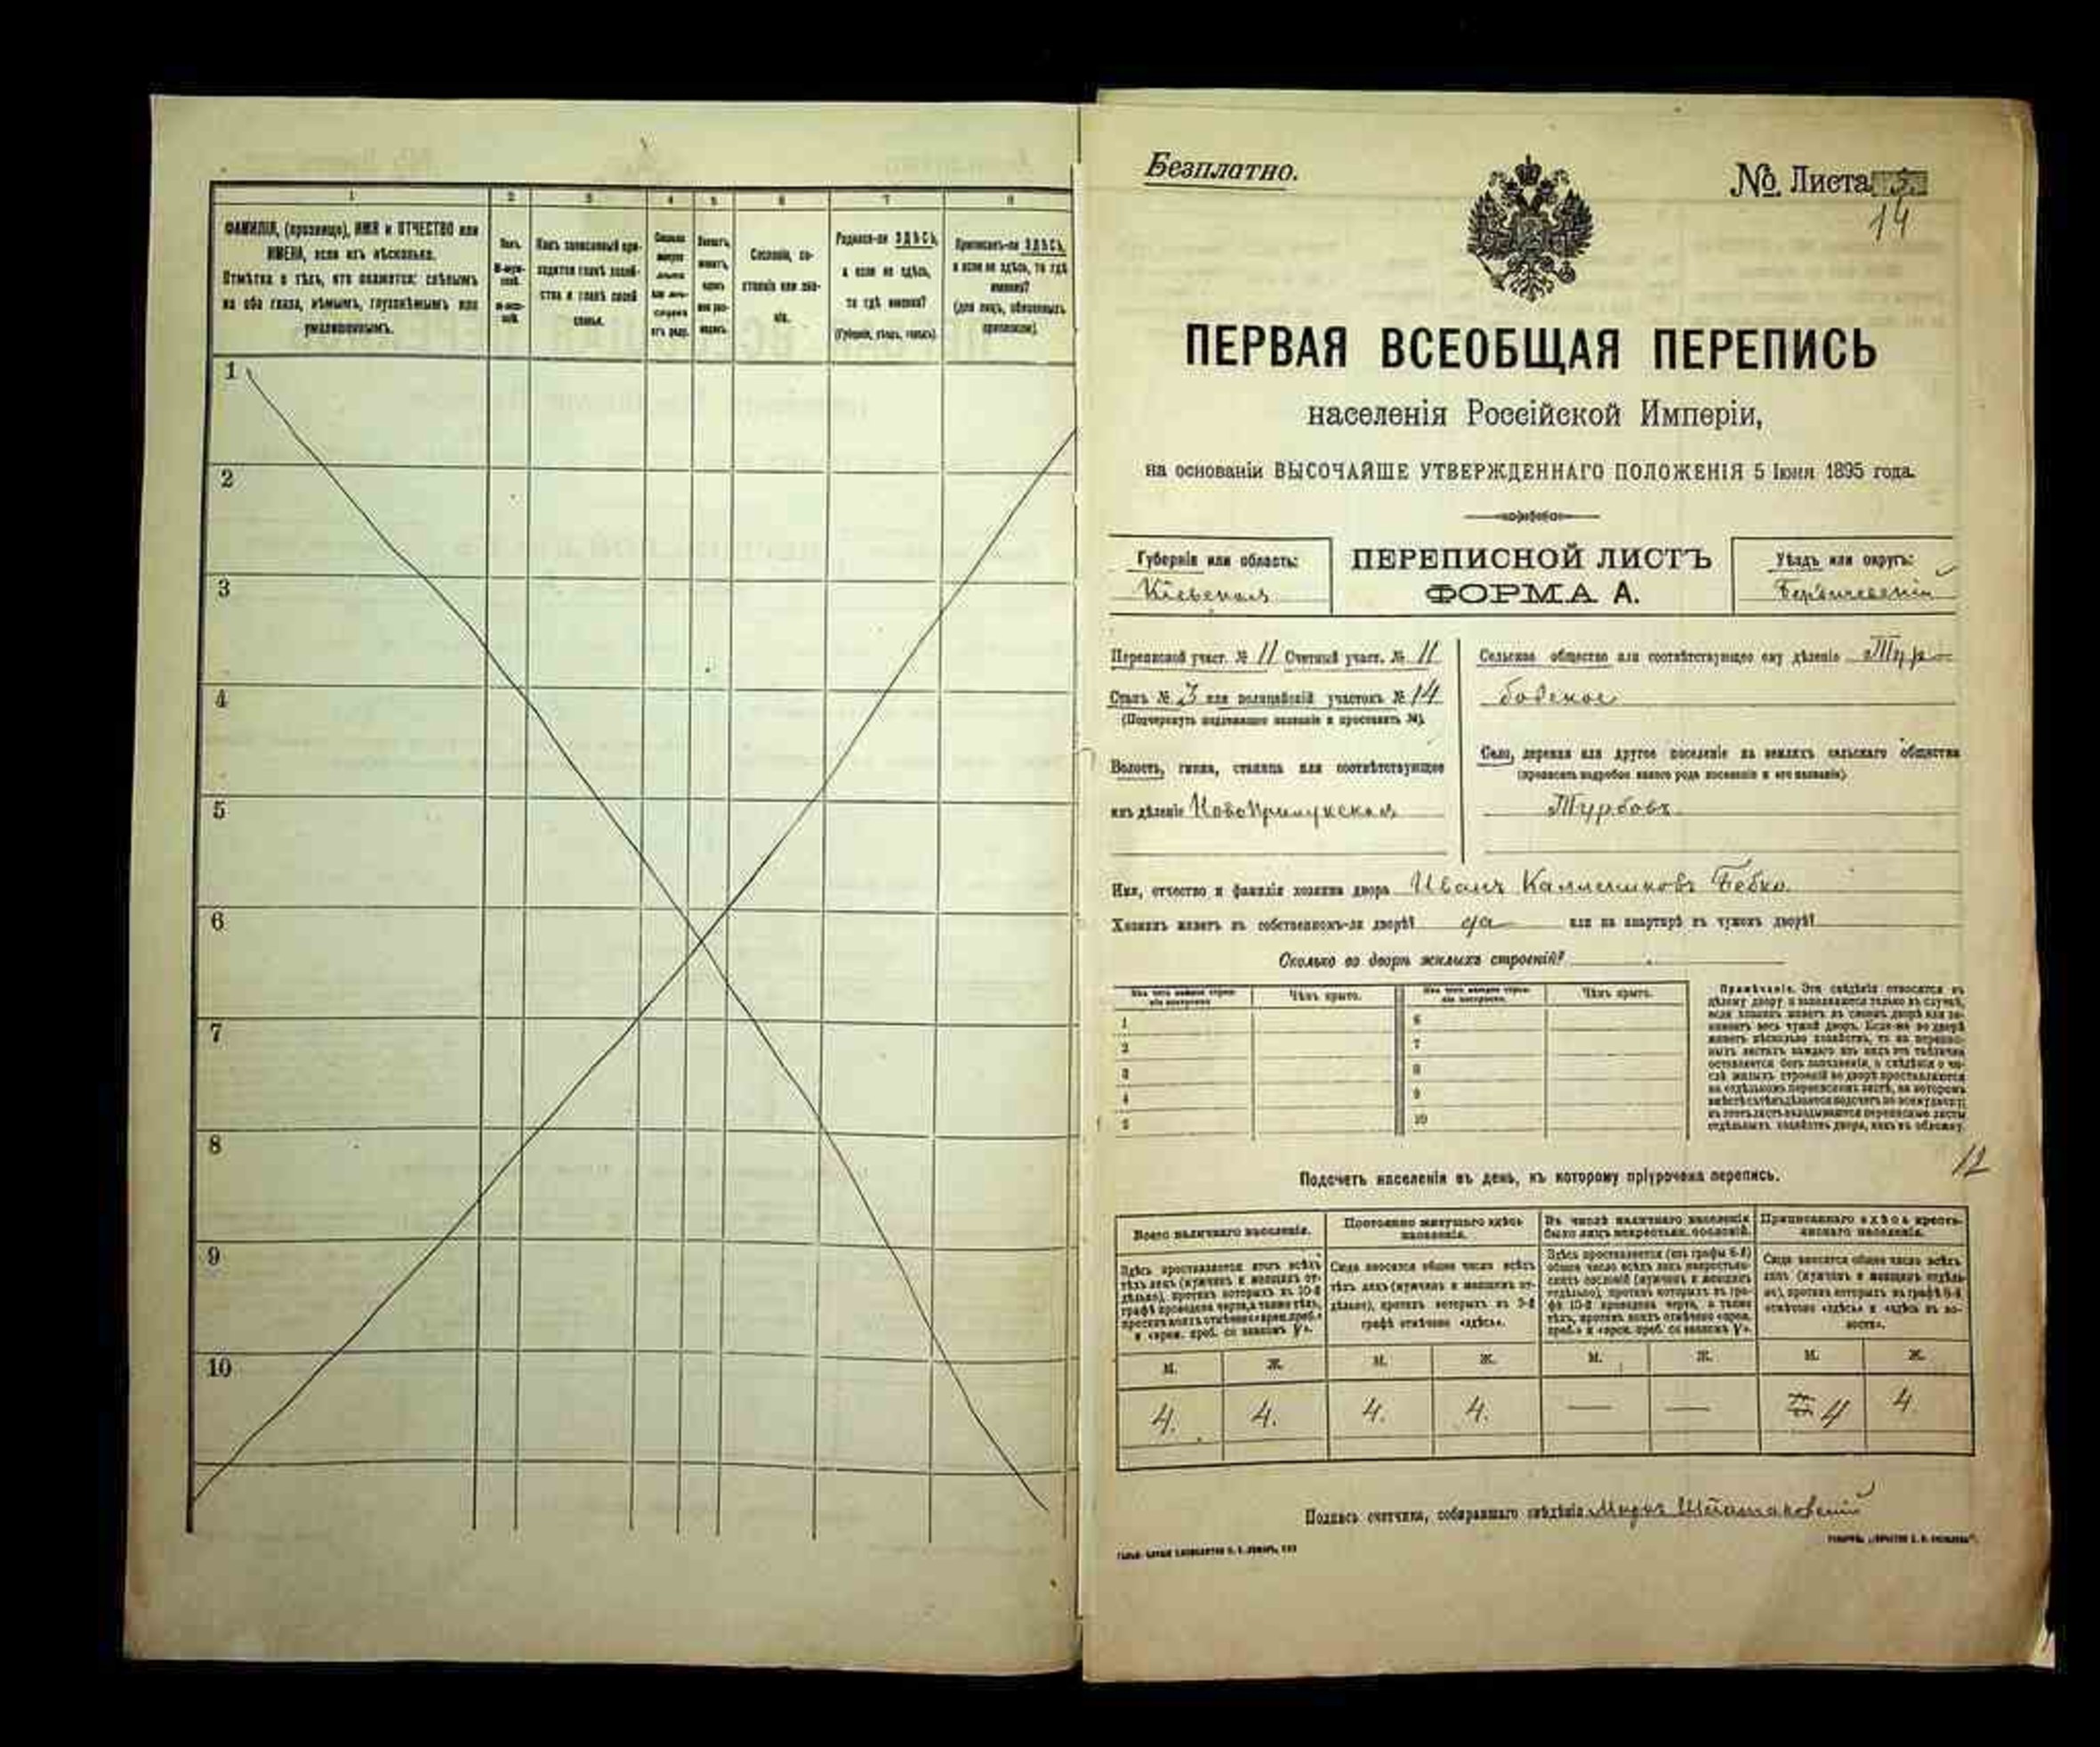 1 2 3 4 5 6 7 8
ФАМИЛІЯ, (прозвище), ИМЯ и ОТЧЕСТВО или
ИМЕНА, если ихъ нѣсколько.
Отмѣтка о тѣхъ, кто окажется: слѣпымъ
на оба глаза, нѣмымъ, глухонѣмымъ или
умалишеннымъ.
Полъ.
Какъ записанный при-
ходится главѣ хозяй-
ства и главѣ своей
семьи.
Сословіе, со-
стояніе или зва-
ніе.
Родился-ли ЗДѢСЬ,
а если не здѣсь,
то гдѣ именно?
(Губернія, уѣздъ, городъ).
Приписанъ-ли ЗДѢСЬ,
а если не здѣсь, то гдѣ
именно?
(для лицъ, обязанныхъ
припискою)
1
2
3
4
5
6
7
8
9
10
Безплатно.
№ Листа 3.
14
ПЕРВАЯ ВСЕОБЩАЯ ПЕРЕПИСЬ
населенія Россійской Имперіи,
на основаніи ВЫСОЧАЙШЕ УТВЕРЖДЕННАГО ПОЛОЖЕНІЯ 5 Іюня 1895 года.
Губернія или область:
Кіевская
ПЕРЕПИСНОЙ ЛИСТЪ
ФОРМА А.
Уѣздъ или округъ:
Бердичевскій
Переписной участ. № 11 Счетный участ. № 11
Станъ № 3 или полицейскій участокъ № 14
(Подчеркнуть надлежащее названіе и проставить №).
Волость, гмина, станица или соотвѣтствующее
имъ дѣленіе НовоПрилукская
Сельское общество или соотвѣтствующее ему дѣленіе Тур-
бовское
Село, деревня или другое поселеніе на земляхъ сельскаго общества
(прописать подробно какого рода поселеніе и его названіе).
Турбовъ
Имя, отчество и фамилія хозяина двора Иванъ Каллиниковъ Бебко
Хозяинъ живетъ въ собственномъ-ли дворѣ? да или на квартирѣ въ чужомъ дворѣ?
Сколько во дворѣ жилыхъ строеній?
Изъ чего каждое строе-
ніе построено.
Чѣмъ крыто.
Изъ чего каждое строе-
ніе построено.
Чѣмъ крыто.
1 6
2 7
3 8
4 9
5 10
Примѣчаніе. Эти свѣдѣнія относятся къ
цѣлому двору и заполняются только въ случаѣ,
если хозяинъ живетъ въ своемъ дворѣ или за-
нимаетъ весь чужой дворъ. Если-же во дворѣ
живетъ нѣсколько хозяйствъ, то на перепис-
ныхъ листахъ каждаго изъ нихъ эта табличка
оставляется безъ заполненія, а свѣдѣнія о чи-
слѣ жилыхъ строеній во дворѣ проставляются
на отдѣльномъ переписномъ листѣ, на которомъ
вмѣстѣ съ тѣмъ дѣлается подсчетъ по всему двору;
въ этотъ листъ вкладываются переписные листы
отдѣльныхъ хозяйствъ двора, какъ въ обложку.
12
Подсчетъ населенія въ день, къ которому пріурочена перепись.
Всего наличнаго населенія.
Постоянно живущаго здѣсь
населенія.
Въ числѣ наличнаго населенія
было лицъ некрестьян. сословій.
Приписаннаго здѣсь кресть-
янскаго населенія.
Здѣсь проставляется итогъ всѣхъ
тѣхъ лицъ (мужчинъ и женщинъ от-
дѣльно), противъ которыхъ въ 10-й
графѣ проведена черта, а также тѣхъ,
противъ коихъ отмѣчено «врем. преб.»
и «врем. преб. со знакомъ V».
Сюда вносится общее число всѣхъ
тѣхъ лицъ (мужчинъ и женщинъ от-
дѣльно), противъ которыхъ въ 9-й
графѣ отмѣчено «здѣсь».
Здѣсь проставляется (изъ графы 6-й)
общее число всѣхъ лицъ некрестьян-
скихъ сословій (мужчинъ и женщинъ
отдѣльно), противъ которыхъ въ гра-
фѣ 10-й проведена черта, а также
тѣхъ, противъ коихъ отмѣчено «врем.
преб.» и «врем. преб. со знакомъ V».
Сюда вносится общее число всѣхъ
лицъ (мужчинъ и женщинъ отдѣль-
но), противъ которыхъ въ графѣ 8-й
отмѣчено «здѣсь» и «здѣсь въ во-
лости».
М. Ж. М. Ж. М. Ж. М. Ж.
4. 4. 4. 4. — — 4 4
Подпись счетчика, собиравшаго свѣдѣнія